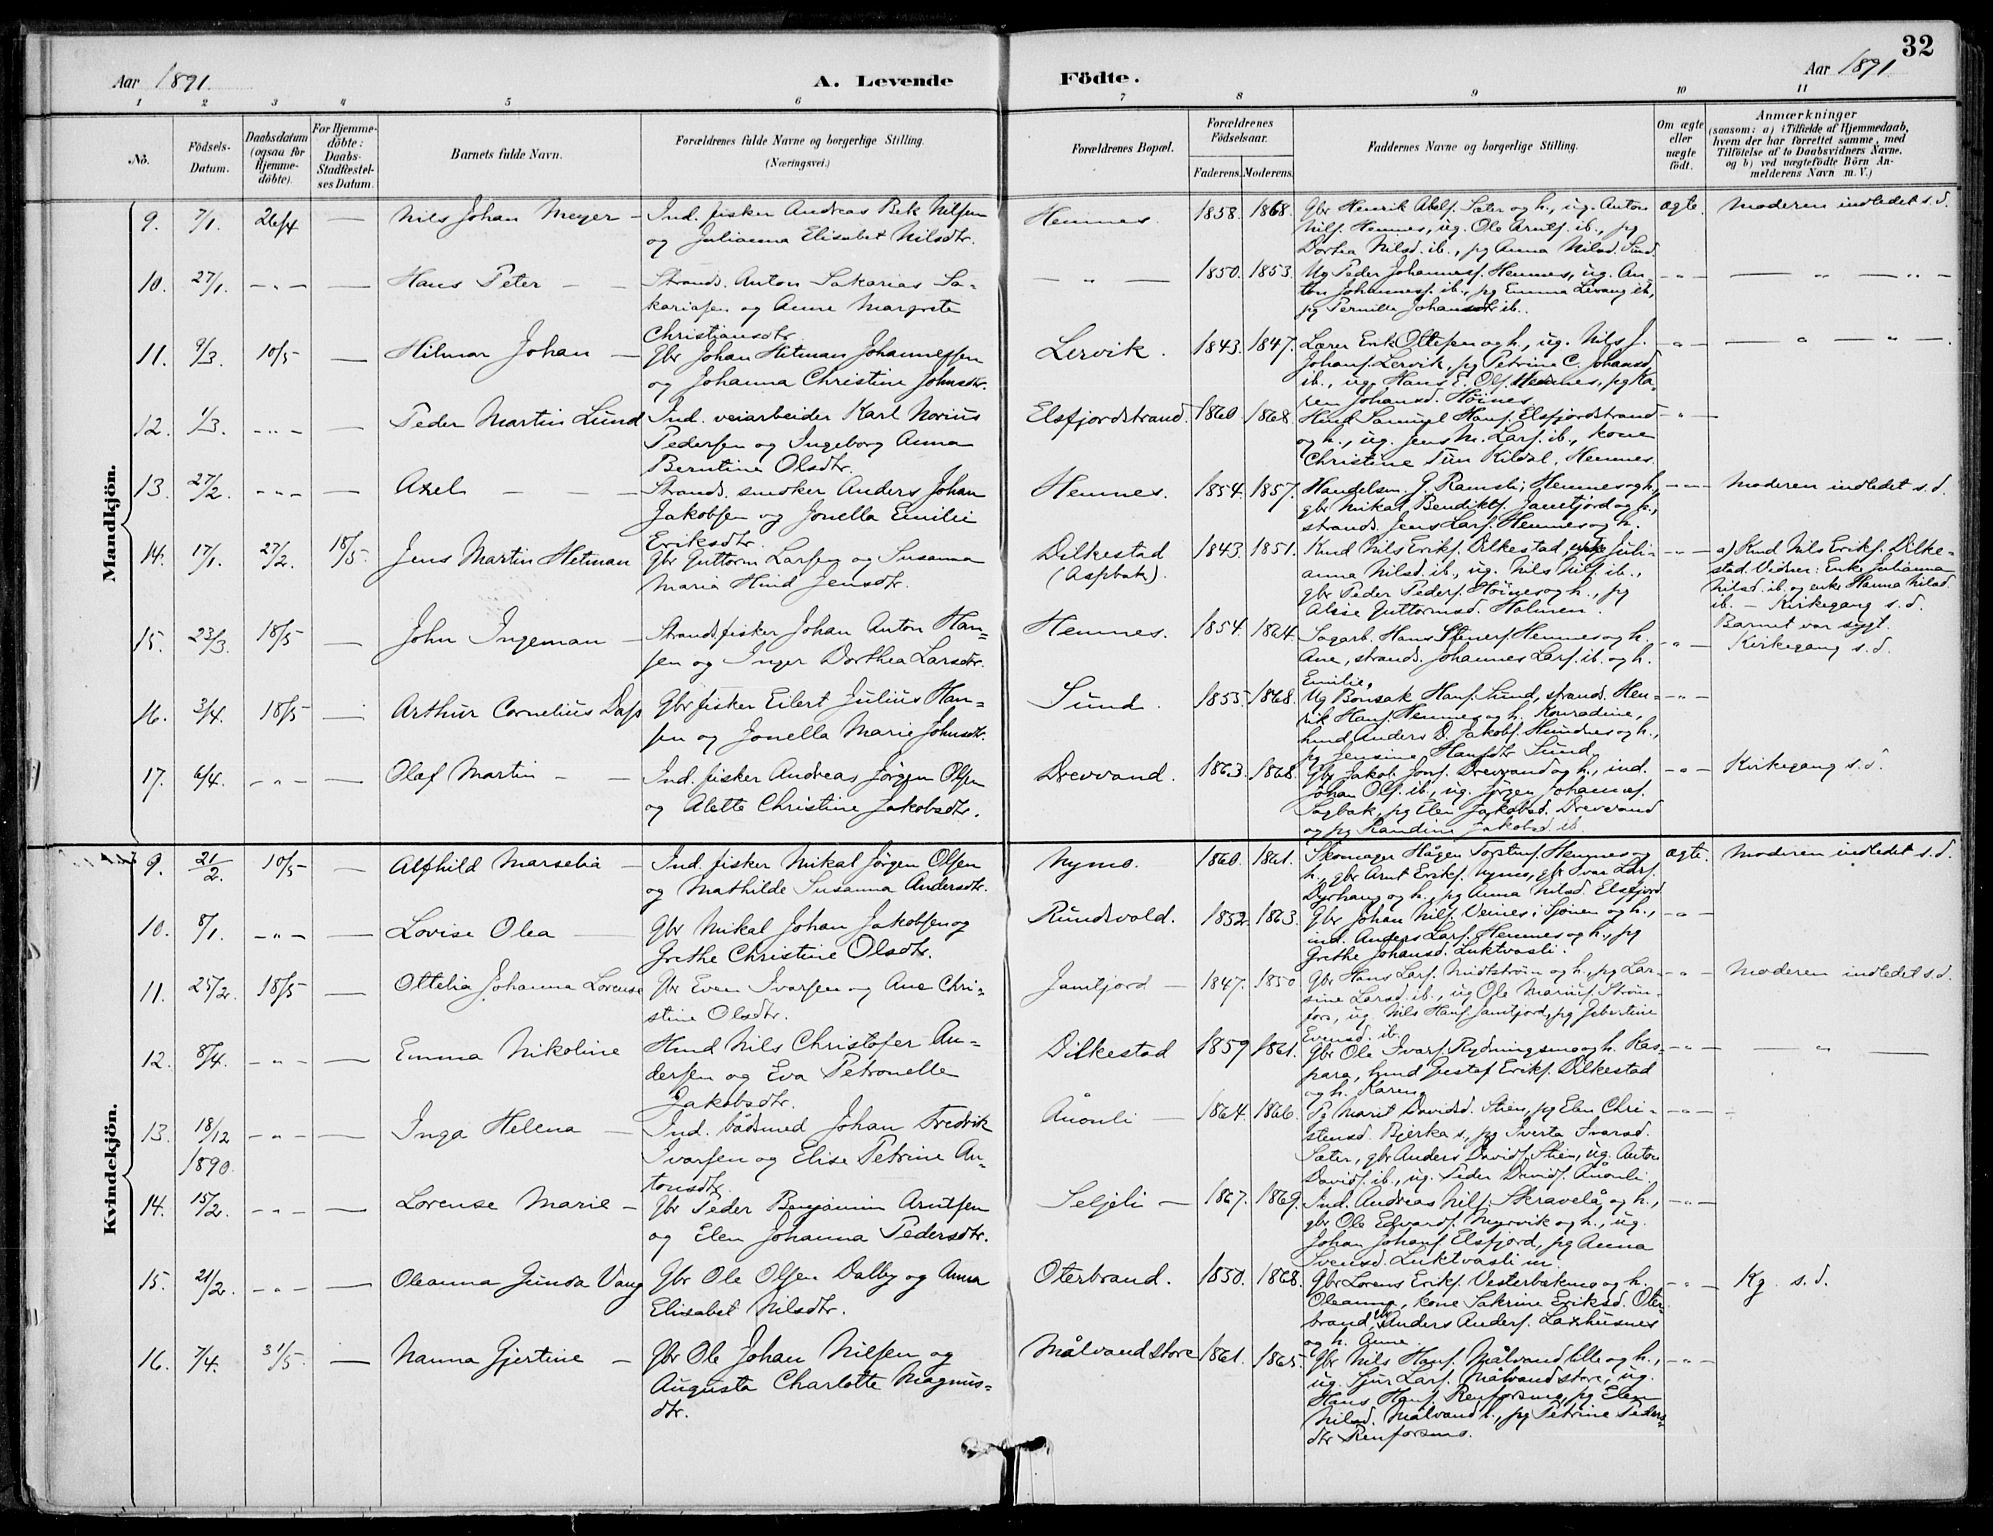 32
Aar 1891.
A. Levende Födte.
Aar 1891
1 2 3 4 5 6 7 8 9 10 11
No.
Födsels-Datum.
Daabsdatum (ogsaa for Hjemmedöbte).
For Hjemmedöbte: Daabs-Stadfæstelses Datum.
Barnets fulde Navn.
Forældrenes fulde Navne og borgerlige Stilling. (Næringsvei.)
Forældrenes Bopæl.
Forældrenes Födselsaar.
Faderens. Moderens.
Faddernes Navne og borgerlige Stilling.
Om ægte eller uægte födt.
Anmærkninger
(saasom: a) i Tilfælde af Hjemmedaab, hvem der har forrettet samme, med Tilföielse af to Daabsvidners Navne, og b) ved uægtefödte Börn Anmelderens Navn m. V.)
Mandkjön.
9. 7/1. 26/4 — Nils Johan Meyer —
Ind. fisker Andreas Bek Nilsen
og Julianna Elisabet Nilsdtr.
Hemnes. 1858. 1868.
Gbr Henrik Adolf. Sæter og h., ug. Anton
Nilf. Hemnes, ug. Ole Arntf. ib., pg
Dorthea Nilsd. ib., pg Anna Nilsd. Sund.
ægte. Moderen indledet s. d.
10. 27/1. — " — — Hans Peter — —
Strands. Anton Sakarias Sa-
kariasen og Anne Margrete
Christjansdtr.
— " — 1850. 1853.
Ug Peder Johannesf. Hemnes, ug. An-
ton Johannesf. ib., pg Emma Levang ib,
pg Pernille Johansdtr ib.
— " — — " — " —
11. 9/3. 10/5 — Hilmar Johan —
Gbr Johan Hetman Johannessen
og Johanna Christine Johnsdtr.
Lervik. 1843. 1847.
Lærer Erik Ottesen og h., ug. Nils J.
Johanf. Lervik, pg Petrine C. Johansd.
ib., ug. Hans E. Olf. Hemnes, pg Ka-
ren Johansd. Höines
— " — — " — " —
12. 1/3. — " — — Peder Martin Lund
Ind. veiarbeider Karl Norius
Pedersen og Ingeborg Anna
Berntine Olsdtr.
Elsfjordstrand. 1860. 1868.
Hmd Samuel Hanf. Elsfjordstrand
og h., ug. Jens M. Larf. ib., kone
Christine Kildal, Hemnes.
— " —
13. 27/2. — " — — Axel — — —
Strands. snedker Anders Johan
Jakobsen og Jonella Emilie
Eriksdtr.
Hemnes. 1854. 1857.
Handelsm. J. Ramsli, Hemnes og h.,
gbr Mikal Bendiktf. Jamtjord og h.,
strands. Jens Larf. Hemnes og h.
— " — Moderen indledet s. d.
14. 17/1. 27/2. 18/5. Jens Martin Hetman
Gbr Guttorm Larsen og Susanna
Maria Hmd Jensdtr.
Dilkestad
(Aspbak).
1843. 1851.
Kmd Nils Erikf. Dilkestad, enke Juli-
anna Nilsd. ib., ug. Nils Nilf. ib.,
gbr Peder Pederf. Höines og h., pg
Alise Guttormsd. Holmen.
— " — a) Kmd Nils Erikf. Dilke-
stad. Vidner: Enke Julianna
Nilsd. ib. og enke Hanna Nilsd.
ib. — Kirkegang s. d.
Barnet var sygt.
15. 23/3. 18/5. — John Ingeman —
Strands. fisker Johan Anton Han-
sen og Inger Dorthea Larsdtr.
Hemnes. 1854. 1864.
Sagarb. Hans Stenerf. Hemnes og h.
Ane, strands. Johannes Larf. ib. og h.
Emilie.
— " — Kirkegang s. d.
16. 3/4. 18/5 — Arthur Cornelius Dass
Gbr fisker Eilert Julius Han-
sen og Jonella Marie Johnsdtr.
Sund. 1855. 1868.
Ug Bonsak Hanf. Sund, strands. Hen-
rik Hanf. Hemnes og h. Konradine,
hmd Anders D. Jakobf. Hundnes og h.,
pg Jensine Hansdtr Sund.
— " —
17. 6/4. — " — — Olaf Martin — —
Ind. fisker Andreas Jörgen Olsen
og Alette Christine Jakobsdtr.
Drevvand. 1863. 1868.
Gbr Jakob Jonf. Drevvand og h., ind.
Johan Olf. ib., ug. Jörgen Johannesf.
Sagbak, pg Elen Jakobsd. Drevvand
og pg Randine Jakobsd. ib.
— " — Kirkegang s. d.
Kvindekjön.
9. 21/2. 10/5 — Alfhild Marselia —
Ind. fisker Mikal Jörgen Olsen
og Mathilde Susanna Andersdtr.
Nymo. 1860. 1861.
Skomager Hågen Hemnes og
h., gbr Arnt Erikf. Nymo, gbr Ivar Larf.
Dyrhaug og h., pg Anna Nilsd. Elsfjord
ægte. Moderen indledet s. d.
10. 8/1. — " — — Lovise Olea —
Gbr Mikal Johan Jakobsen og
Grethe Christine Olsdtr.
Rundvold. 1852. 1863.
Gbr Johan Nilf. Veines i Sjonen og h.,
ind. Anders Larf. Hemnes og h., pg
Grethe Johansd. Luktvasli.
— " —
11. 25/2. 18/5 — Ottelia Johanna Lorense
Gbr Even Ivarsen og Ane Chri-
stine Olsdtr.
Jamtjord — 1847. 1850
Gbr Hans Larf. Midtström og h., pg Lar-
sine Larsd. ib., ug Ole Mariuf. Ström-
fors, ug. Nils Hanf. Jamtjord, pg Jebertine
Evensd. ib.
— " — Moderen indledet s. d.
12. 8/4. — " — — Emma Nikoline
Hmd Nils Christofer An-
dersen og Eva Petronelle
Jakobsdtr.
Dilkestad 1859 1861.
Gbr Ole Ivarf. Rydningsmo og h. Kas-
para, hmd Gustaf Erikf. Dilkestad
og h. Karen.
— " — " —
13. 18/12 1890. — " — — Inga Helena —
Ind. bådsmed Johan Fredrik
Ivarsen og Elise Petrine An-
tonsdtr.
Åvonli — 1864. 1866.
Pg Marit Davidsd. Stien, pg Elen Chri-
stensd. Bjerka, pg Iverta Ivarsd.
Sæter, gbr Anders Davidf. Stien, ug. Anton
Davidf. ib., ug. Peder Davidf. Åvonli.
— " —
14. 15/2. — " — — Lorense Marie —
Gbr Peder Benjamin Arntsen
og Elen Johanna Pedersdtr.
Seljeli — 1867. 1869.
Ind. Andreas Nilf. Skravelå og h.,
gbr Ole Edvardf. Myrvik og h., ug.
Johan Johanf. Elsfjord, pg Anna
Svensd. Luktvasli m.
— " —
15. 21/2. — " — — Oleanna Gunda Vang
Gbr Ole Olsen Dalby og Anna
Elisabet Nilsdtr.
Oterbrand. 1850. 1868.
Gbr Lorens Erikf. Vesterbakmo og h.
Oleanna, kone Sakrine Eriksd. Oter-
brand, Anders Anderf. Laxhusnes
og h. Anne.
— " — Kg s. d.
16. 7/4. 31/5. — Nanna Gjertine —
Gbr Ole Johan Nilsen og
Augusta Charlotte Magnus-
dtr.
Målvand store 1861. 1865.
Gbr Nils Hanf. Målvand lille og h.,
ug. Sjur Larf. Målvand store, ug.
Hans Hanf. Renforsmo, pg Elen
Nilsd. Målvand l., pg Petrine Peders-
dtr Renforsmo.
— " —